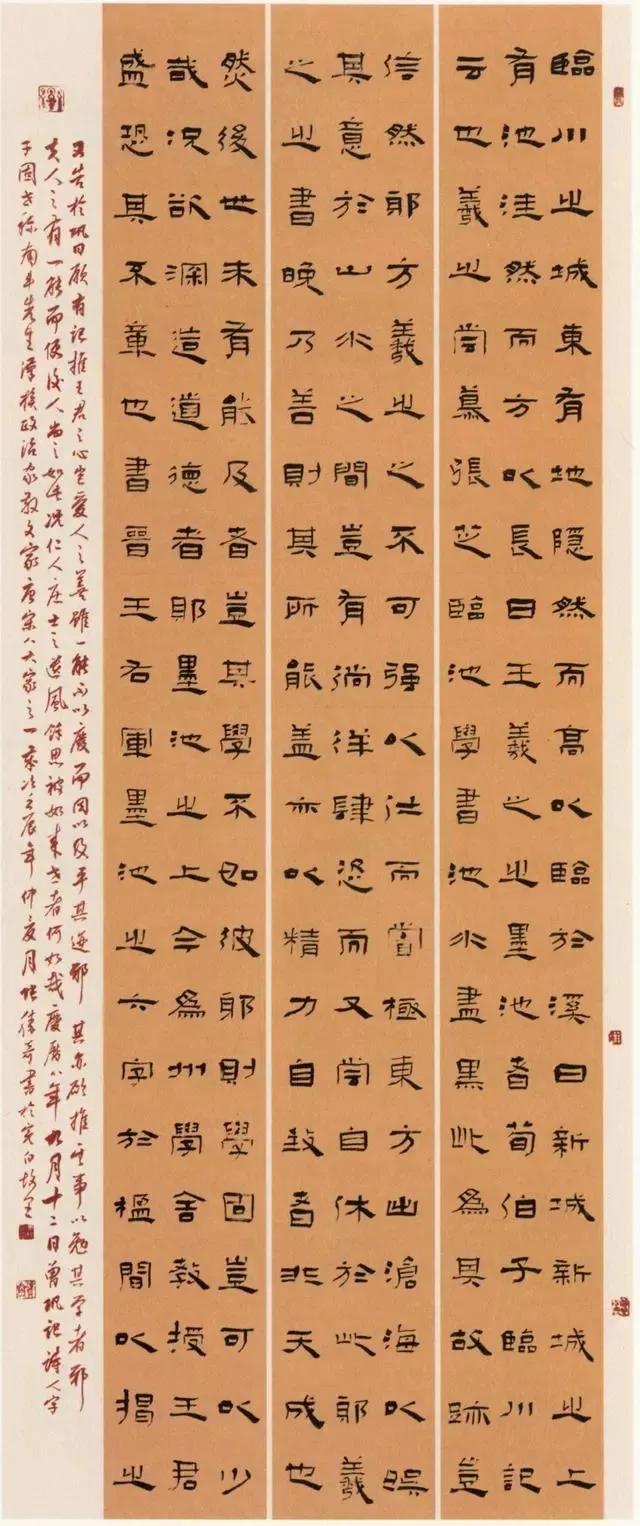 臨川之城東有地隱然而高以臨於溪曰新城新城之上
有池洼然而方以長曰王羲之之墨池者荀伯子臨川記
云也羲之嘗慕張芝臨池學書池水盡黑此爲其故跡豈
信然耶方羲之之不可强以仕而嘗極東方出滄海以娛
其意於山水之間豈有徜徉肆恣而又嘗自休於此耶羲
之之書晚乃善則其所能盖亦以精力自致者非天成也
然後世未有能及者豈其學不如彼耶則學固豈可以少
哉況欲深造道德者耶墨池之上今爲州學舍教授王君
盛恐其不章也書晋王右軍墨池之六字於楹間以揭之
又告於巩曰願有記推王君之心豈愛人之善雖一能不以廢而因以及乎其迹邪 其亦欲推其事以勉其学者邪
夫人之有一能而使後人尚之如此況仁人莊士之遺風餘思被於來世者何如哉慶曆八年九月十二日曾巩記詩人字
子固世称南丰先生漢族政治家散文家唐宋八大家之一歲次壬辰年仲夏月 書於